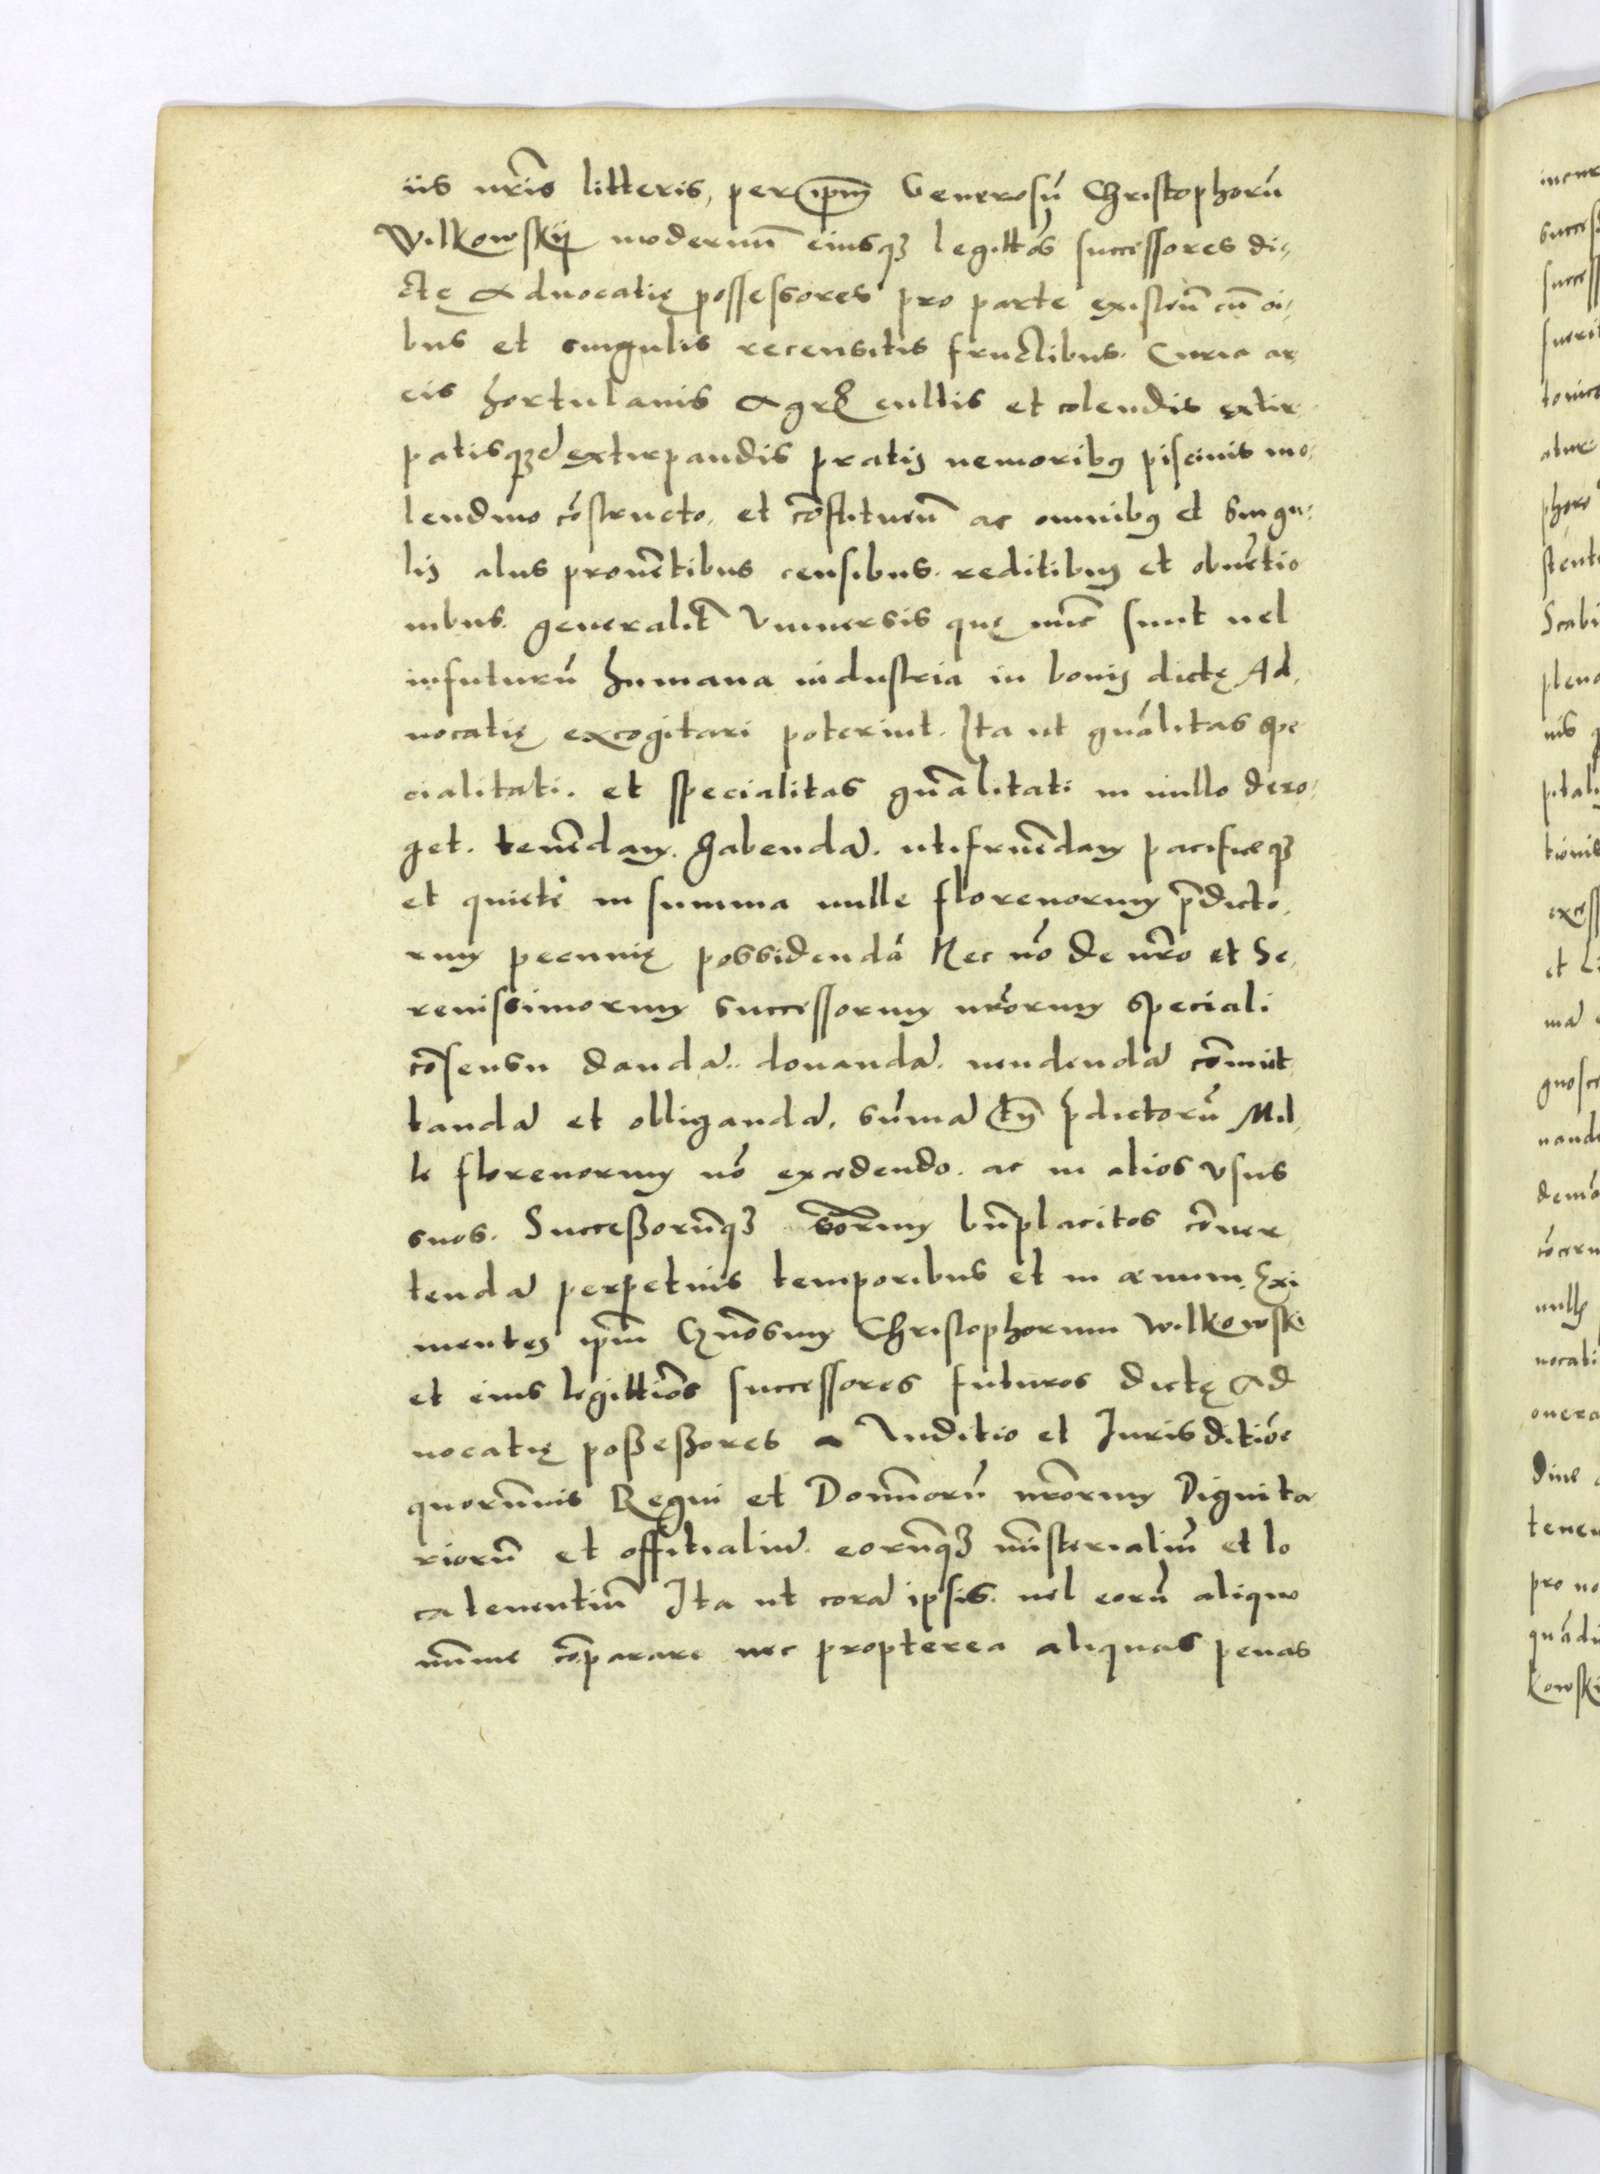 iis nr̃is litteris, per ip̃m Generosũ Christophorũ
Wilkowskij modernũ eiusq3 legitt̃os successores di-
ctę Aduocatię possessores pro parte existeñ cũ oĩ-
bus et singulis recensitis fructibus. Curia ar
eis hortulanis Agr̃ cultis et colendis extir
patisq3 extirpandis pratis nemoribus piscinis mo-
lendino cõstructo. et cõstitueñ ac omnibus et Singu-
lis aliis prouẽtibus censibus. reditibus et obuẽtio
nibus. generalit̃ Vniuersis quę nũc sunt uel
infuturũ humana industria in bonis dictę Ad,
uocatię excogitari poterint. Ita ut gũalitas spe
cialitati. et specialitas gñalitati in nullo dero-
get. tenẽdam. habendã. utifruẽdam pacificeq3
et quiete in summa mille florenorum p̃dicto,
rum pecunię possidendã Nec nõ de nr̃o et Se,
renissimorum successorum nr̃orum speciali
cõsensu dandã. donandã. uendendã cõmut
tandã et obligandã. sũmã tñ p̃dictorũ Mil,
le florenorum nõ excedendo. ac in alios usus
suos. Successorũq3 suorum bñplacitos cõuer
tendã perpetuis temporibus et in aeuum. Exi
mentes ip̃m Gñosum Christophorum Wilkowski
et eius legittiõs successores futuros dictę Ad
uocatię possessores a Iuditio et Iurisditiõe
quorũuis Regni et Domĩorũ nr̃orum Dignita
riorũ et offitialiũ. eorũq3 mĩsterialiũ et lo
catenentiũ Ita ut corã ipsis. uel eorũ aliquo
mĩme cõparare nec propterea aliquas penas